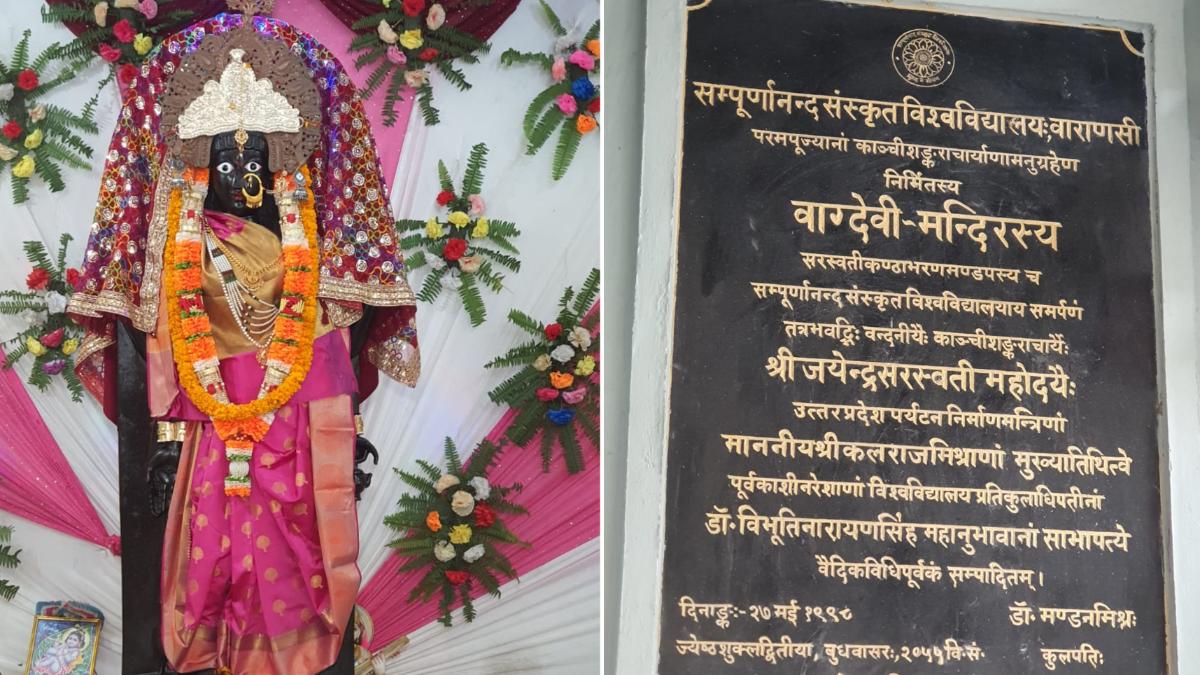 सम्पूर्णानन्द संस्कृत विश्वविद्यालयः, वाराणसी
परमपूज्यानां काञ्चीशङ्कराचार्याणामनुग्रहेण
निर्मितस्य
वाग्देवी-मन्दिरस्य
सरस्वतीकण्ठाभरणमण्डपस्य च
सम्पूर्णानन्द संस्कृत विश्वविद्यालयाय समर्पणं
तत्रभवद्भिः वन्दनीयैः काञ्चीशङ्कराचार्यैः
श्री जयेन्द्रसरस्वती महोदयैः
उत्तर प्रदेश पर्यटन निर्माणमन्त्रिणां
माननीयश्रीकलराजमिश्राणां मुख्यातिथित्वे
पूर्वकाशीनरेशाणां विश्वविद्यालय प्रतिकुलाधिपतीनां
डॉ॰ विभूतिनारायणसिंह महानुभावानां साभापत्ये
वैदिकविधिपूर्वकं सम्पादितम्।
दिनाङ्कः- २७ मई १९९८ डॉ॰ मण्डनमिश्रः
ज्येष्ठशुक्लद्वितीया, बुधवासरः, २०५५ वि.सं. कुलपतिः